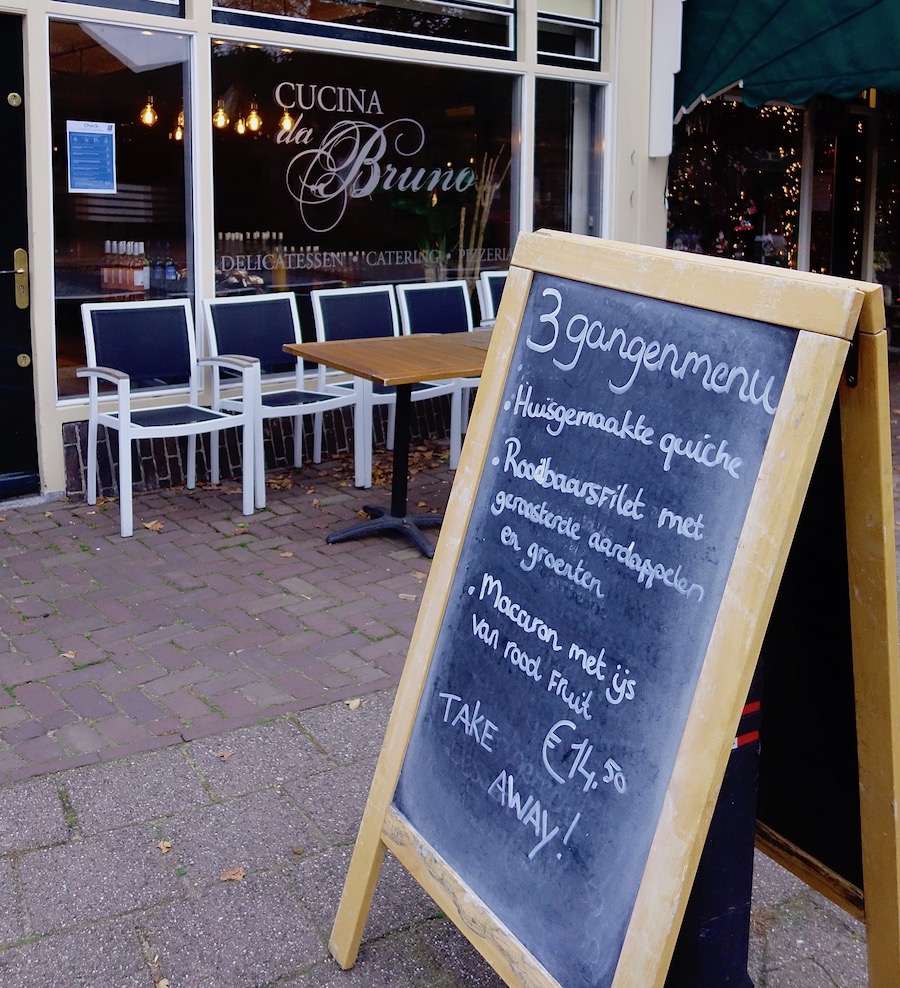 CUCINA
da
Bruno
DELICATESSEN • CATERING • PIZZERIA
3 gangenmenu
• Huisgemaakte quiche
• Roodbaarsfilet met
geroosterde aardappelen
en groenten
• Macaron met ijs
van rood Fruit
TAKE €14.50
AWAY!